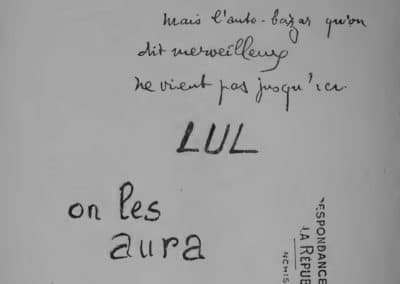 mais l'auto-bazar qu'on
dit merveilleux
ne vient pas jusqu'ici.
LUL
on les
aura
ESPONDANCE
LA RÉPUB
NCHIS